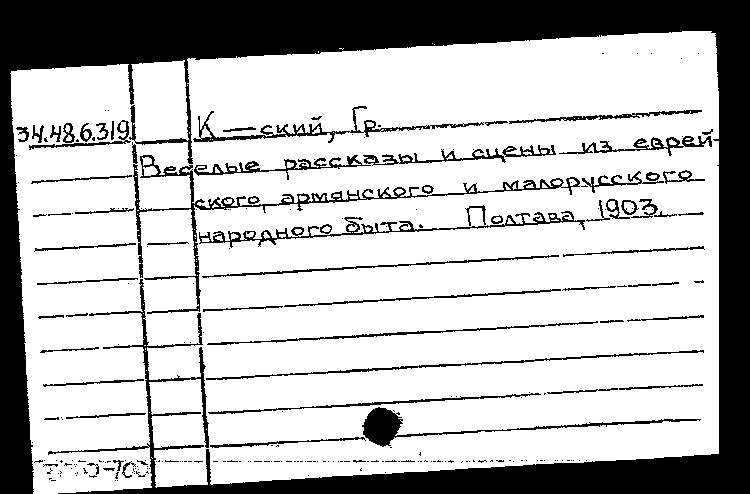 34.48.6.319 К—ский, Гр.
Веселые рассказы и сцены из еврей-
ского, армянского и малорусского
народного быта. Полтава, 1903.